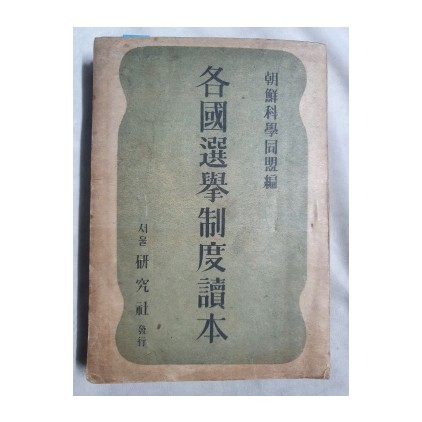 朝鮮科學同盟編
各國選擧制度讀本
서울 研究社 發行